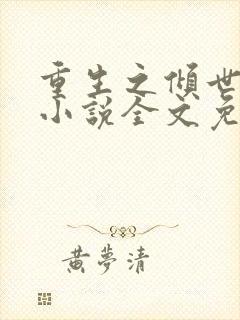 重生之傾世
小説全文免
黄夢清